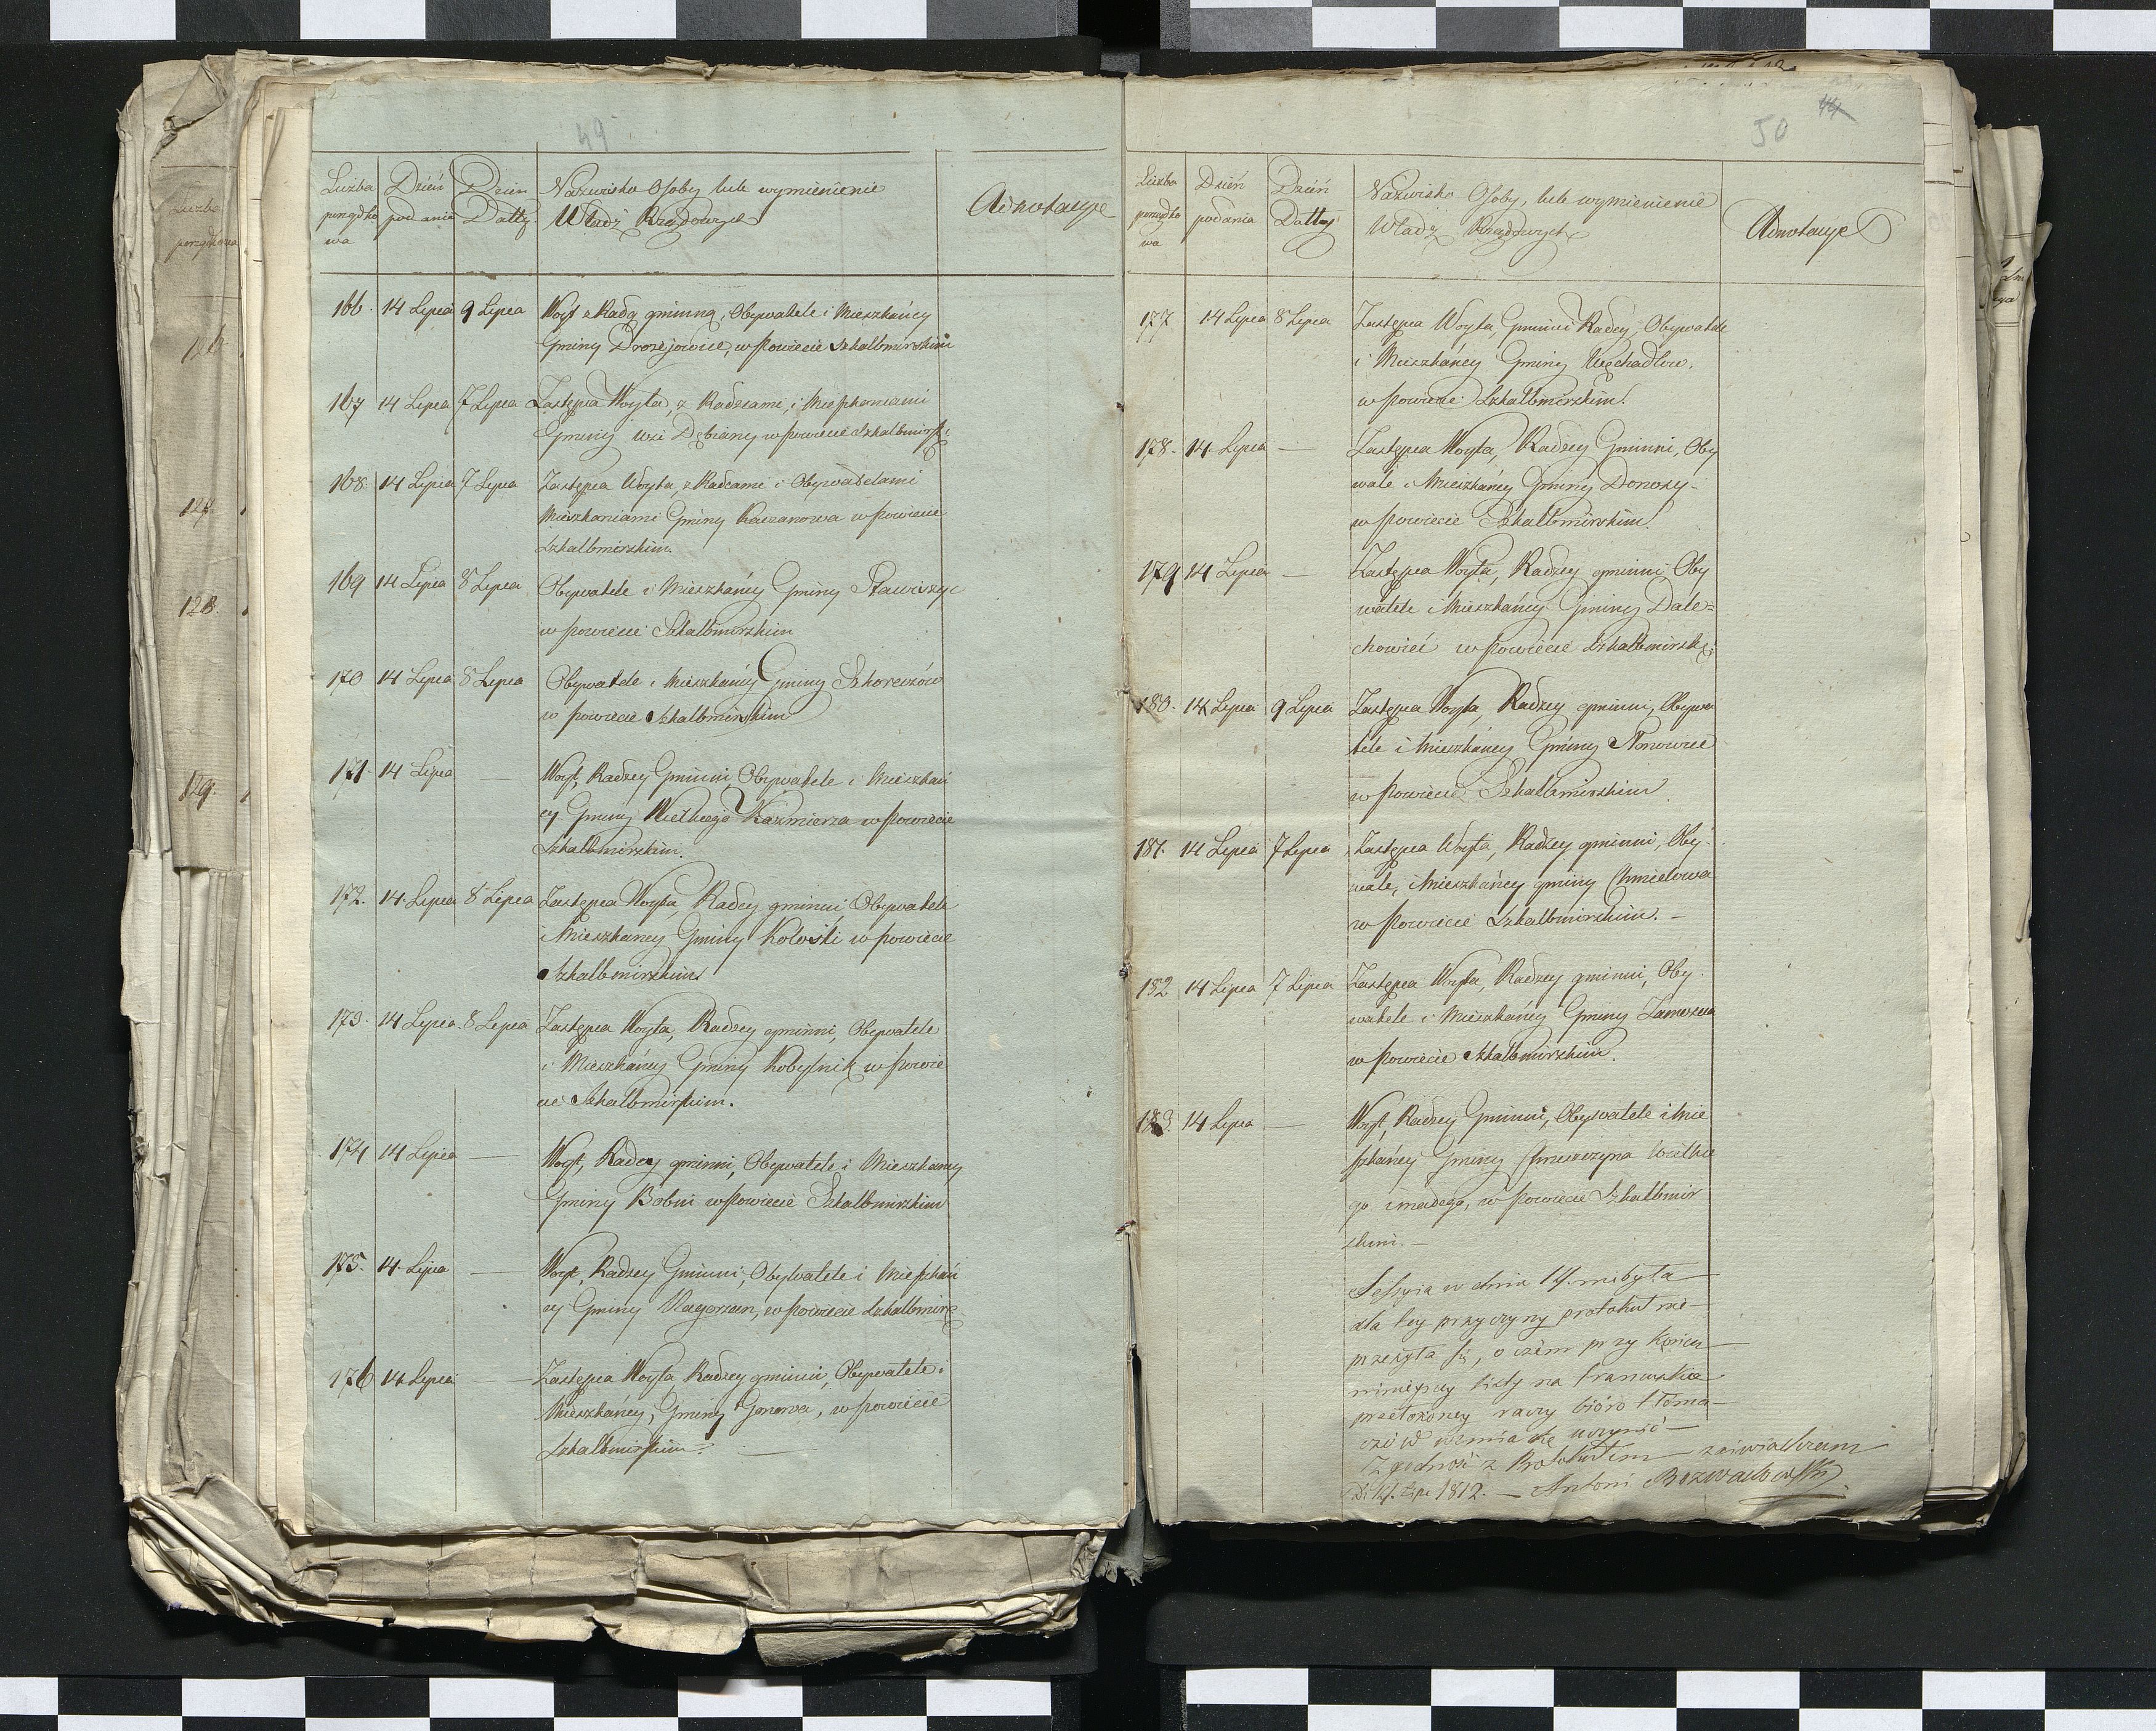 49
Liczba
porządko
wa
Dzień
podania
Dzien
Datty
Nazwisko Osoby lub wymienienie
Władz Rządowych
Adnotacye
166. 14 Lipca 9 Lipca Woyt z Radą gminną, Obywatele i Mieszkańcy
Gminy Drożejowice, w Powiecie Szkalbmirskim
167 14 Lipca 7 Lipca Zastępca Woyta, z Radcami, i Mieszkancami
Gminy wsi Dębiany w powiecie Szkalbmirsk:
168. 14 Lipca 7 Lipca Zastępca Woyta, z Radcami i Obywatelami
Mieszkancami Gminy Kaczanowa w Powiecie
Szkalbmirskim.
169 14 Lipca 8 Lipca Obywatele i Mieszkańcy Gminy Sławiszyc
w powiecie Szkalbmirskim
170 14 Lipca 8 Lipca Obywatele i Mieszkańcy Gminy Skorczów
w powiecie Szkalbmirskim
171. 14 Lipca — Woyt, Radzcy Gminni, Obywatele i Mieszkań
cy Gminy Wielkiego Kazmierza w Powiecie
Szkalbmirskim.
172. 14. Lipca 8 Lipca Zastępca Woyta, Radcy gminni, Obywatele
i Mieszkancy Gminy Koloski w powiecie
Szkalbmirskim
173. 14 Lipca. 8 Lipca Zastępca Woyta, Radzcy gminni, Obywatele
i Mieszkańcy Gminy Kobylnik w powie
cie Szkalbmirskim.
174 14 Lipca — Woyt, Radcy gminni, Obywatele i Mieszkancy
Gminy Bobin w Powiecie Szkalbmirskim
175. 14. Lipca — Woyt, Radzcy Gminni, Obywatele i Mieszkań
cy Gminy Kagorzan, w powiecie Szkalbmirs
176 14 Lipca — Zastępca Woyta Radzcy gminni, Obywatele i
Mieszkańcy, Gminy Gonowa, w powiecie
Szkalbmirskim. —
44
50
Liczba
porządko
wa
Dzień
podania
Dzień
Datty
Nazwisko Osoby, lub wymienienie
Władz Rządowych
Adnotacye
177 14 Lipca 8 Lipca Zastępca Woyta, Gminni Radcy, Obywatele
i Mieszkańcy Gminy Węchadłow,
w powiecie Szkalbmirskim.
178. 14. Lipca — Zastępca Woyta, Radzcy Gminni, Oby
wate i Mieszkańcy Gminy Donosy-
w powiecie Szkalbmirskim.
179 14 Lipca — Zastępca Woyta, Radzcy gminni Oby
watele i Mieszkańcy Gminy Dale=
chowic w powiecie Szkalbmirsk:
180. 14 Lipca 9 Lipca Zastępca Woyta, Radzcy gminni, Obywa
tele i Mieszkańcy Gminy
w powiecie Szkalbmirskim
181. 14 Lipca 7 Lipca Zastępca Woyta, Radzcy gminni, Oby-
wate, i Mieszkańcy gminy Chmielowa
w powiecie Szkalbmirskim. —
182 14 Lipca 7 Lipca Zastępca Woyta, Radzcy gminni, Oby-
watele i Mieszkańcy Gminy
w powiecie Szkalbmirskim.
183. 14 Lipca — Woyt, Radzcy Gminni, Obywatele i Mie
szkańcy Gminy Skruszyna Wielkie
go i małego, w powiecie Szkalbmir
skim. —
Sessyia w dniu 14. niebyła
dla tey przyczyny protokuł nie-
przeczyta się, o czém przy końcu
ninieyszy listy na francuskie
przełożoney raczy bióro tłoma-
czów wzmiankę uczynić —
Zgodność z Protokułem zaświadczam
D: 14. Lipc 1812. — Antoni Rozwadowski